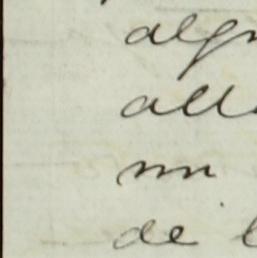 alg
all
un
de l